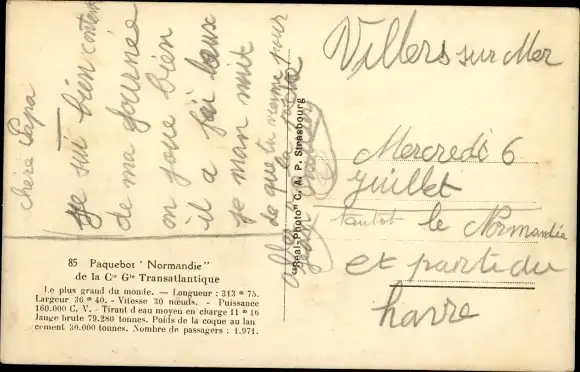 Villers sur Mer
Mercredé 6
juillet
tantot le Normandie
et partidu
havre
chere Papa
je sui bien content
de ma journée
on joue bien
il a fai beux
je man nuit
de que tu vienne pour
"Real-Photo" C. A. P. Strasbourg
85 Paquebot "Normandie"
de la Cie Gle Transatlantique
Le plus grand du monde. — Longueur : 313 m 75.
Largeur 36 m 40. - Vitesse 30 nœuds. - Puissance
160.000 C. V. - Tirant d'eau moyen en charge 11 m 16
Jauge brute 79.280 tonnes. Poids de la coque au lan
cement 30.000 tonnes. Nombre de passagers : 1.971.